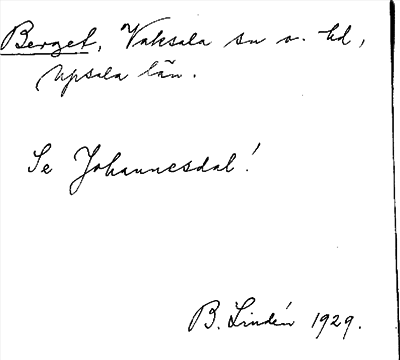 Berget, Vaksala sn o. hd,
Upsala län.
Se Johannesdal!
B. Lindén 1929.